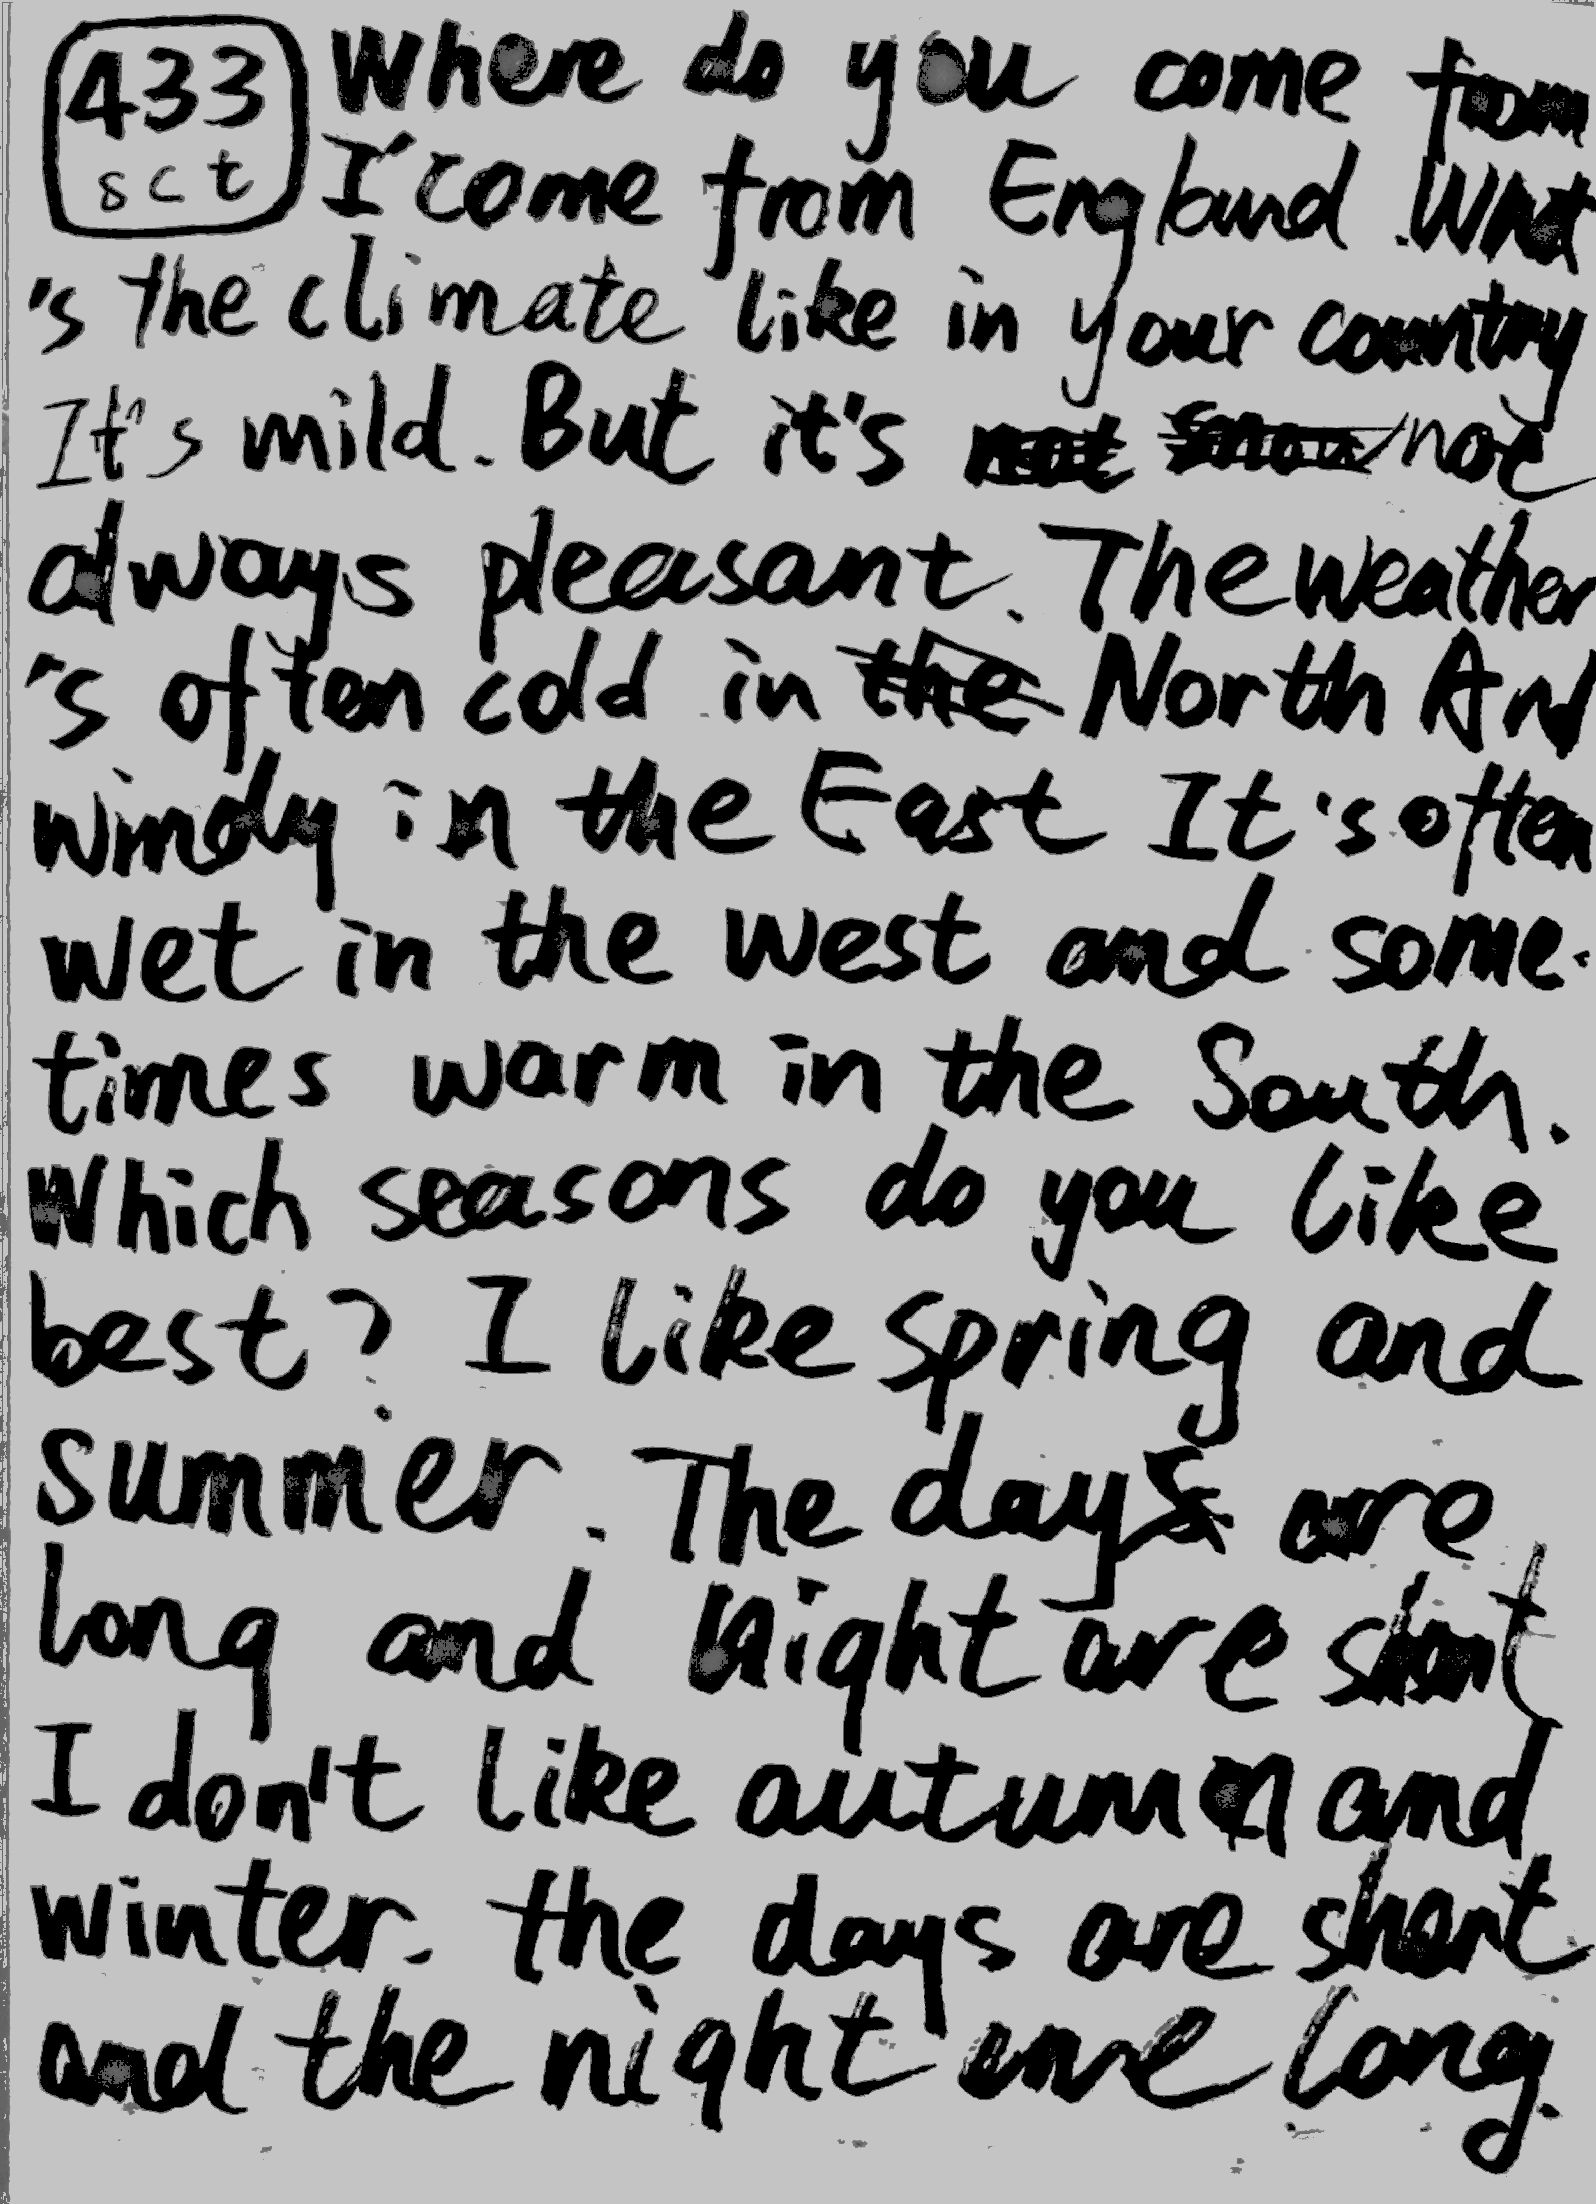 433 Where do you come from
sct I'come from England. What
's the climate like in your country
It's mild. But it's not
always pleasant. The weather
's often cold in North And
windy in the East It's often
wet in the west and some-
times warm in the South.
Which seasons do you like
best? I like spring and
summer. The days are
long and night are short
I don't like autumn and
winter. the days are short
and the night are long.